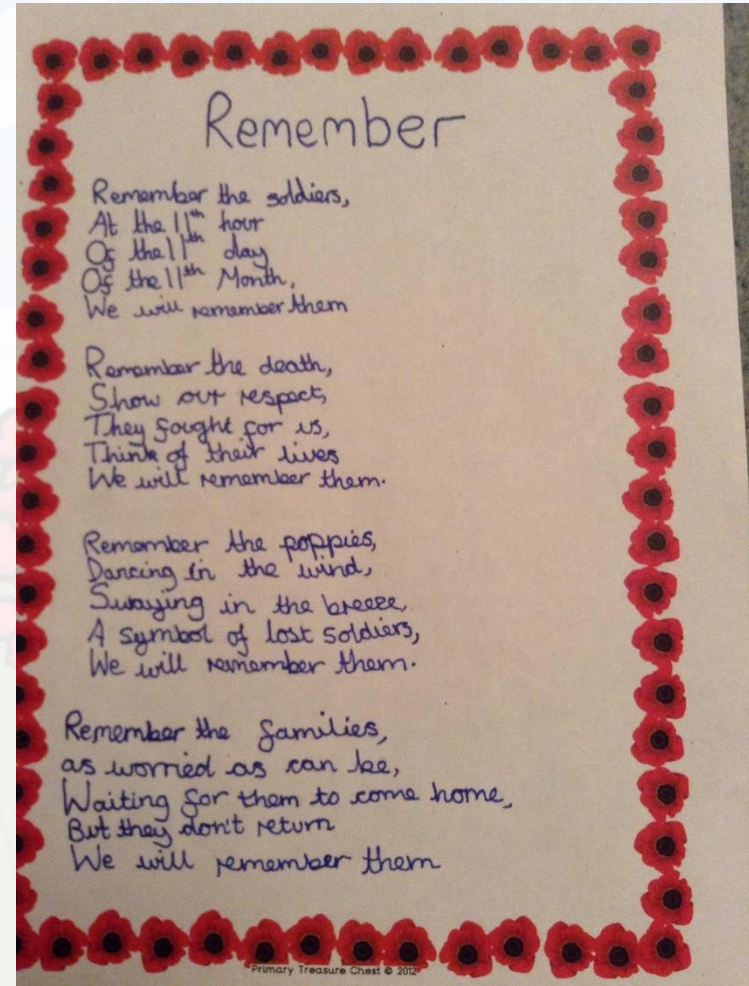 Remember
Remember the soldiers,
At the 11th hour
Of the 11th day
Of the 11th Month,
We will remember them
Remember the death,
Show our respect,
They fought for us,
Think of their lives
We will remember them.
Remember the poppies,
Dancing in the wind,
Swaying in the breeze,
A symbol of lost soldiers,
We will remember them.
Remember the families,
as worried as can be,
Waiting for them to come home,
But they don't return
We will remember them
Primary Treasure Chest © 2012